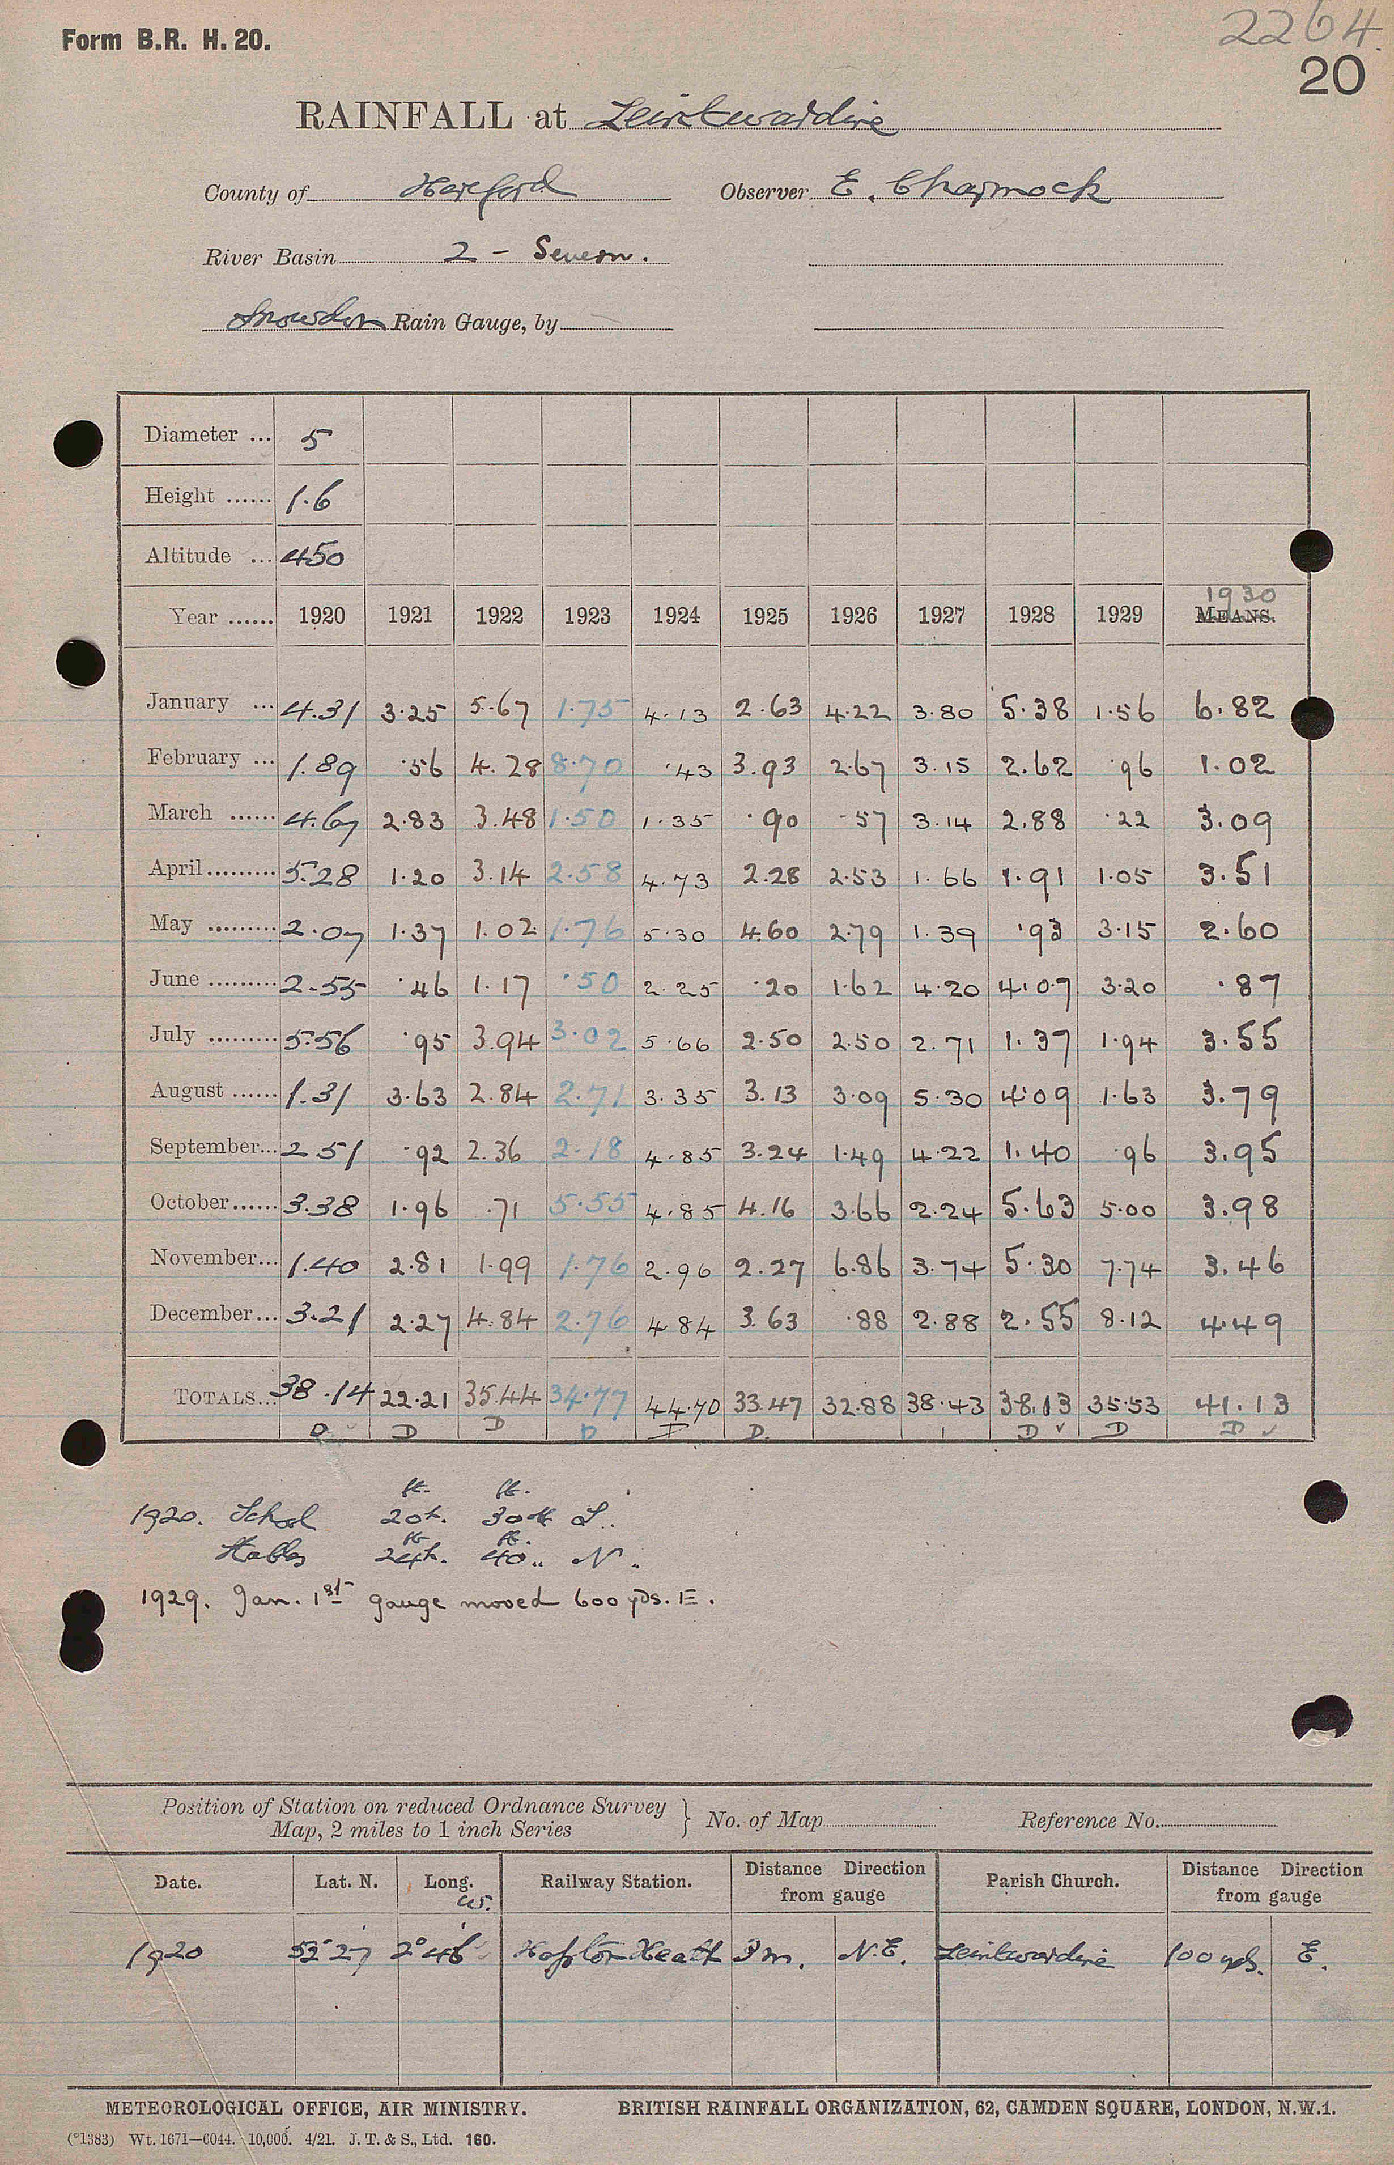 Form B.R. H. 20.
2264.
20
RAINFALL at Leintwardine
County of Hereford Observer E. Charnock
River Basin 2 - Severn.
Snowdon Rain Gauge, by
Diameter ... 5
Height ...... 1.6
Altitude ... 450
1930
Year ...... 1920 1921 1922 1923 1924 1925 1926 1927 1928 1929 MEANS.
January ... 4.31 3.25 5.67 1.75 4.13 2.63 4.22 3.80 5.38 1.56 6.82
February ... 1.89 .56 4.28 8.70 .43 3.93 2.67 3.15 2.62 .96 1.02
March ...... 4.67 2.83 3.48 1.50 1.35 .90 .57 3.14 2.88 .22 3.09
April......... 5.28 1.20 3.14 2.58 4.73 2.28 2.53 1.66 1.91 1.05 3.51
May ......... 2.07 1.37 1.02 1.76 5.30 4.60 2.79 1.39 .93 3.15 2.60
June ......... 2.55 .46 1.17 .50 2.25 .20 1.62 4.20 4.07 3.20 .87
July ......... 5.56 .95 3.94 3.02 5.66 2.50 2.50 2.71 1.37 1.94 3.55
August ...... 1.31 3.63 2.84 2.71 3.35 3.13 3.09 5.30 4.09 1.63 3.79
September... 2.51 .92 2.36 2.18 4.85 3.24 1.49 4.22 1.40 .96 3.95
October...... 3.38 1.96 .71 5.55 4.85 4.16 3.66 2.24 5.63 5.00 3.98
November... 1.40 2.81 1.99 1.76 2.96 2.27 6.86 3.74 5.30 7.74 3.46
December... 3.21 2.27 4.84 2.76 4.84 3.63 .88 2.88 2.55 8.12 4.49
TOTALS... 38.14 22.21 35.44 34.77 44.70 33.47 32.88 38.43 38.13 35.53 41.13
D D D D D. D D D
ft. ft.
1920. School 20 30
ft. ft.
24 40 N.
1929. Jan. 1st gauge moved 600 yds. E.
Position of Station on reduced Ordnance Survey
Map, 2 miles to 1 inch Series } No. of Map Reference No.
Date. Lat. N. Long. W. Railway Station. Distance Direction from gauge Parish Church. Distance Direction from gauge
1920 52° 27' 2° 46' Hopton Heath 3 m. N.E. Leintwardine 100 yds. E.
METEOROLOGICAL OFFICE, AIR MINISTRY. BRITISH RAINFALL ORGANIZATION, 62, CAMDEN SQUARE, LONDON, N.W.1.
(*1383) Wt. 1671—6044. 10,000. 4/21. J. T. & S., Ltd. 160.